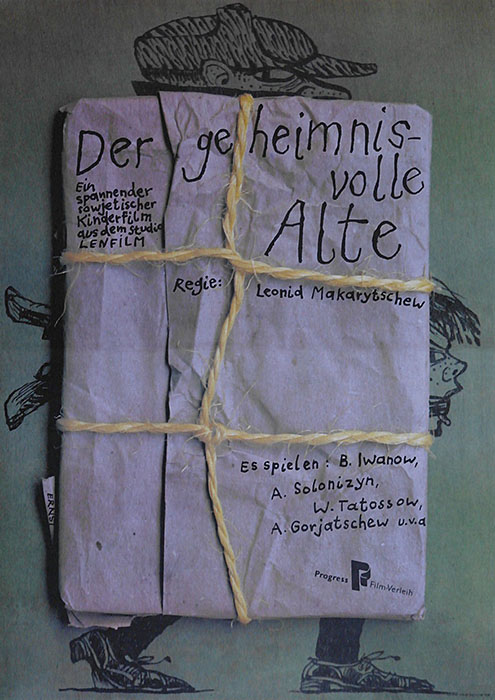 Der geheimnis-
volle
Alte
Ein
spannender
sowjetischer
Kinderfilm
aus dem studio
LENFILM
Regie: Leonid Makarytschew
Es spielen: B. Iwanow,
A. Solonizyn,
W. Tatossow,
A. Gorjatschew u.v.a
Progress Film-Verleih
ERNS